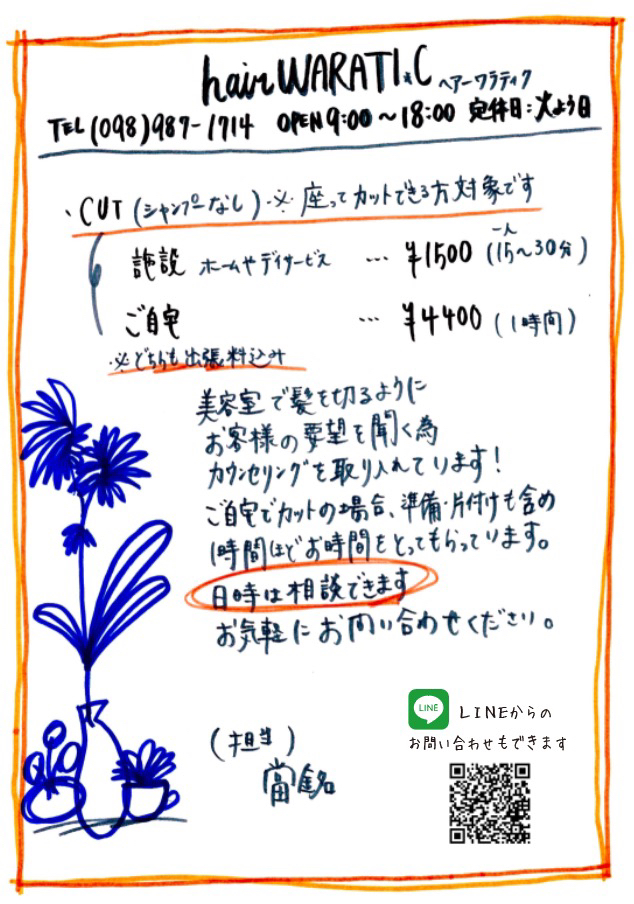 hair WARATI.C ヘアーワラティク
TEL (098)987-1714 OPEN 9:00～18:00 定休日:火よう日
・CUT (シャンプーなし)・※座ってカットできる方対象です
施設 ホームやデイサービス … ¥1500 (一人15～30分)
ご自宅 … ¥4400 (1時間)
・※どちらも出張料込み
美容室で髪を切るように
お客様の要望を聞く為
カウンセリングを取り入れています!
ご自宅でカットの場合、準備・片付けも含め
1時間ほどお時間をとってもらっています。
日時は相談できます
お気軽にお問い合わせください。
LINE
LINEからの
お問い合わせもできます
(担当)
當銘